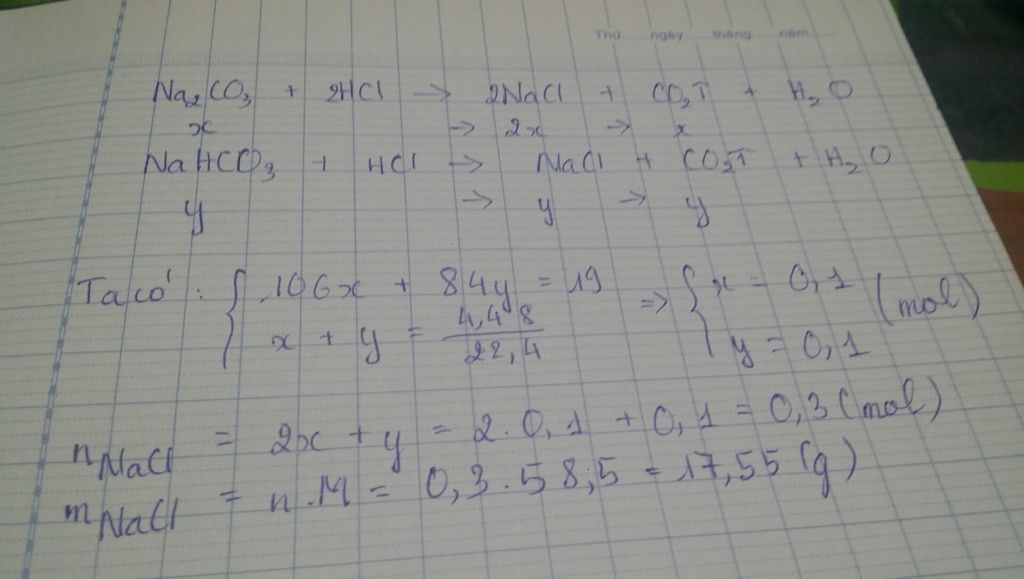 Thứ ngày tháng năm
Na₂CO₃ + 2HCl → 2NaCl + CO₂↑ + H₂O
x → 2x → x
NaHCO₃ + HCl → NaCl + CO₂↑ + H₂O
y → y → y
Ta có: { 106x + 84y = 19 => { x = 0,1 (mol)
x + y = 4,48/22,4 y = 0,1
nNaCl = 2x + y = 2.0,1 + 0,1 = 0,3 (mol)
mNaCl = n.M = 0,3.58,5 = 17,55 (g)